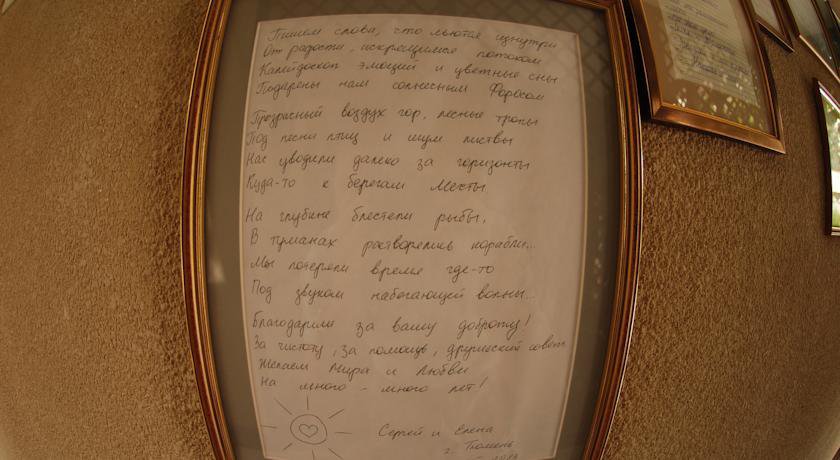 Пишем слова, что льются изнутри
От радости, искрящимся потоком
Калейдоскоп эмоций и цветные сны
Подарены нам солнечным Форосом
Прозрачный воздух гор, лесные тропы
Под песни птиц и шум листвы
Нас уводили далеко за горизонты
Куда-то к берегам Мечты
На глубине блестели рыбы,
В туманах растворялись корабли...
Мы потеряли время где-то
Под звуком набегающей волны...
Благодарим за вашу доброту!
За чистоту, за помощь, дружеский совет
Желаем Мира и Любви
На много - много лет!
Сергей и Елена
г. Тюмень